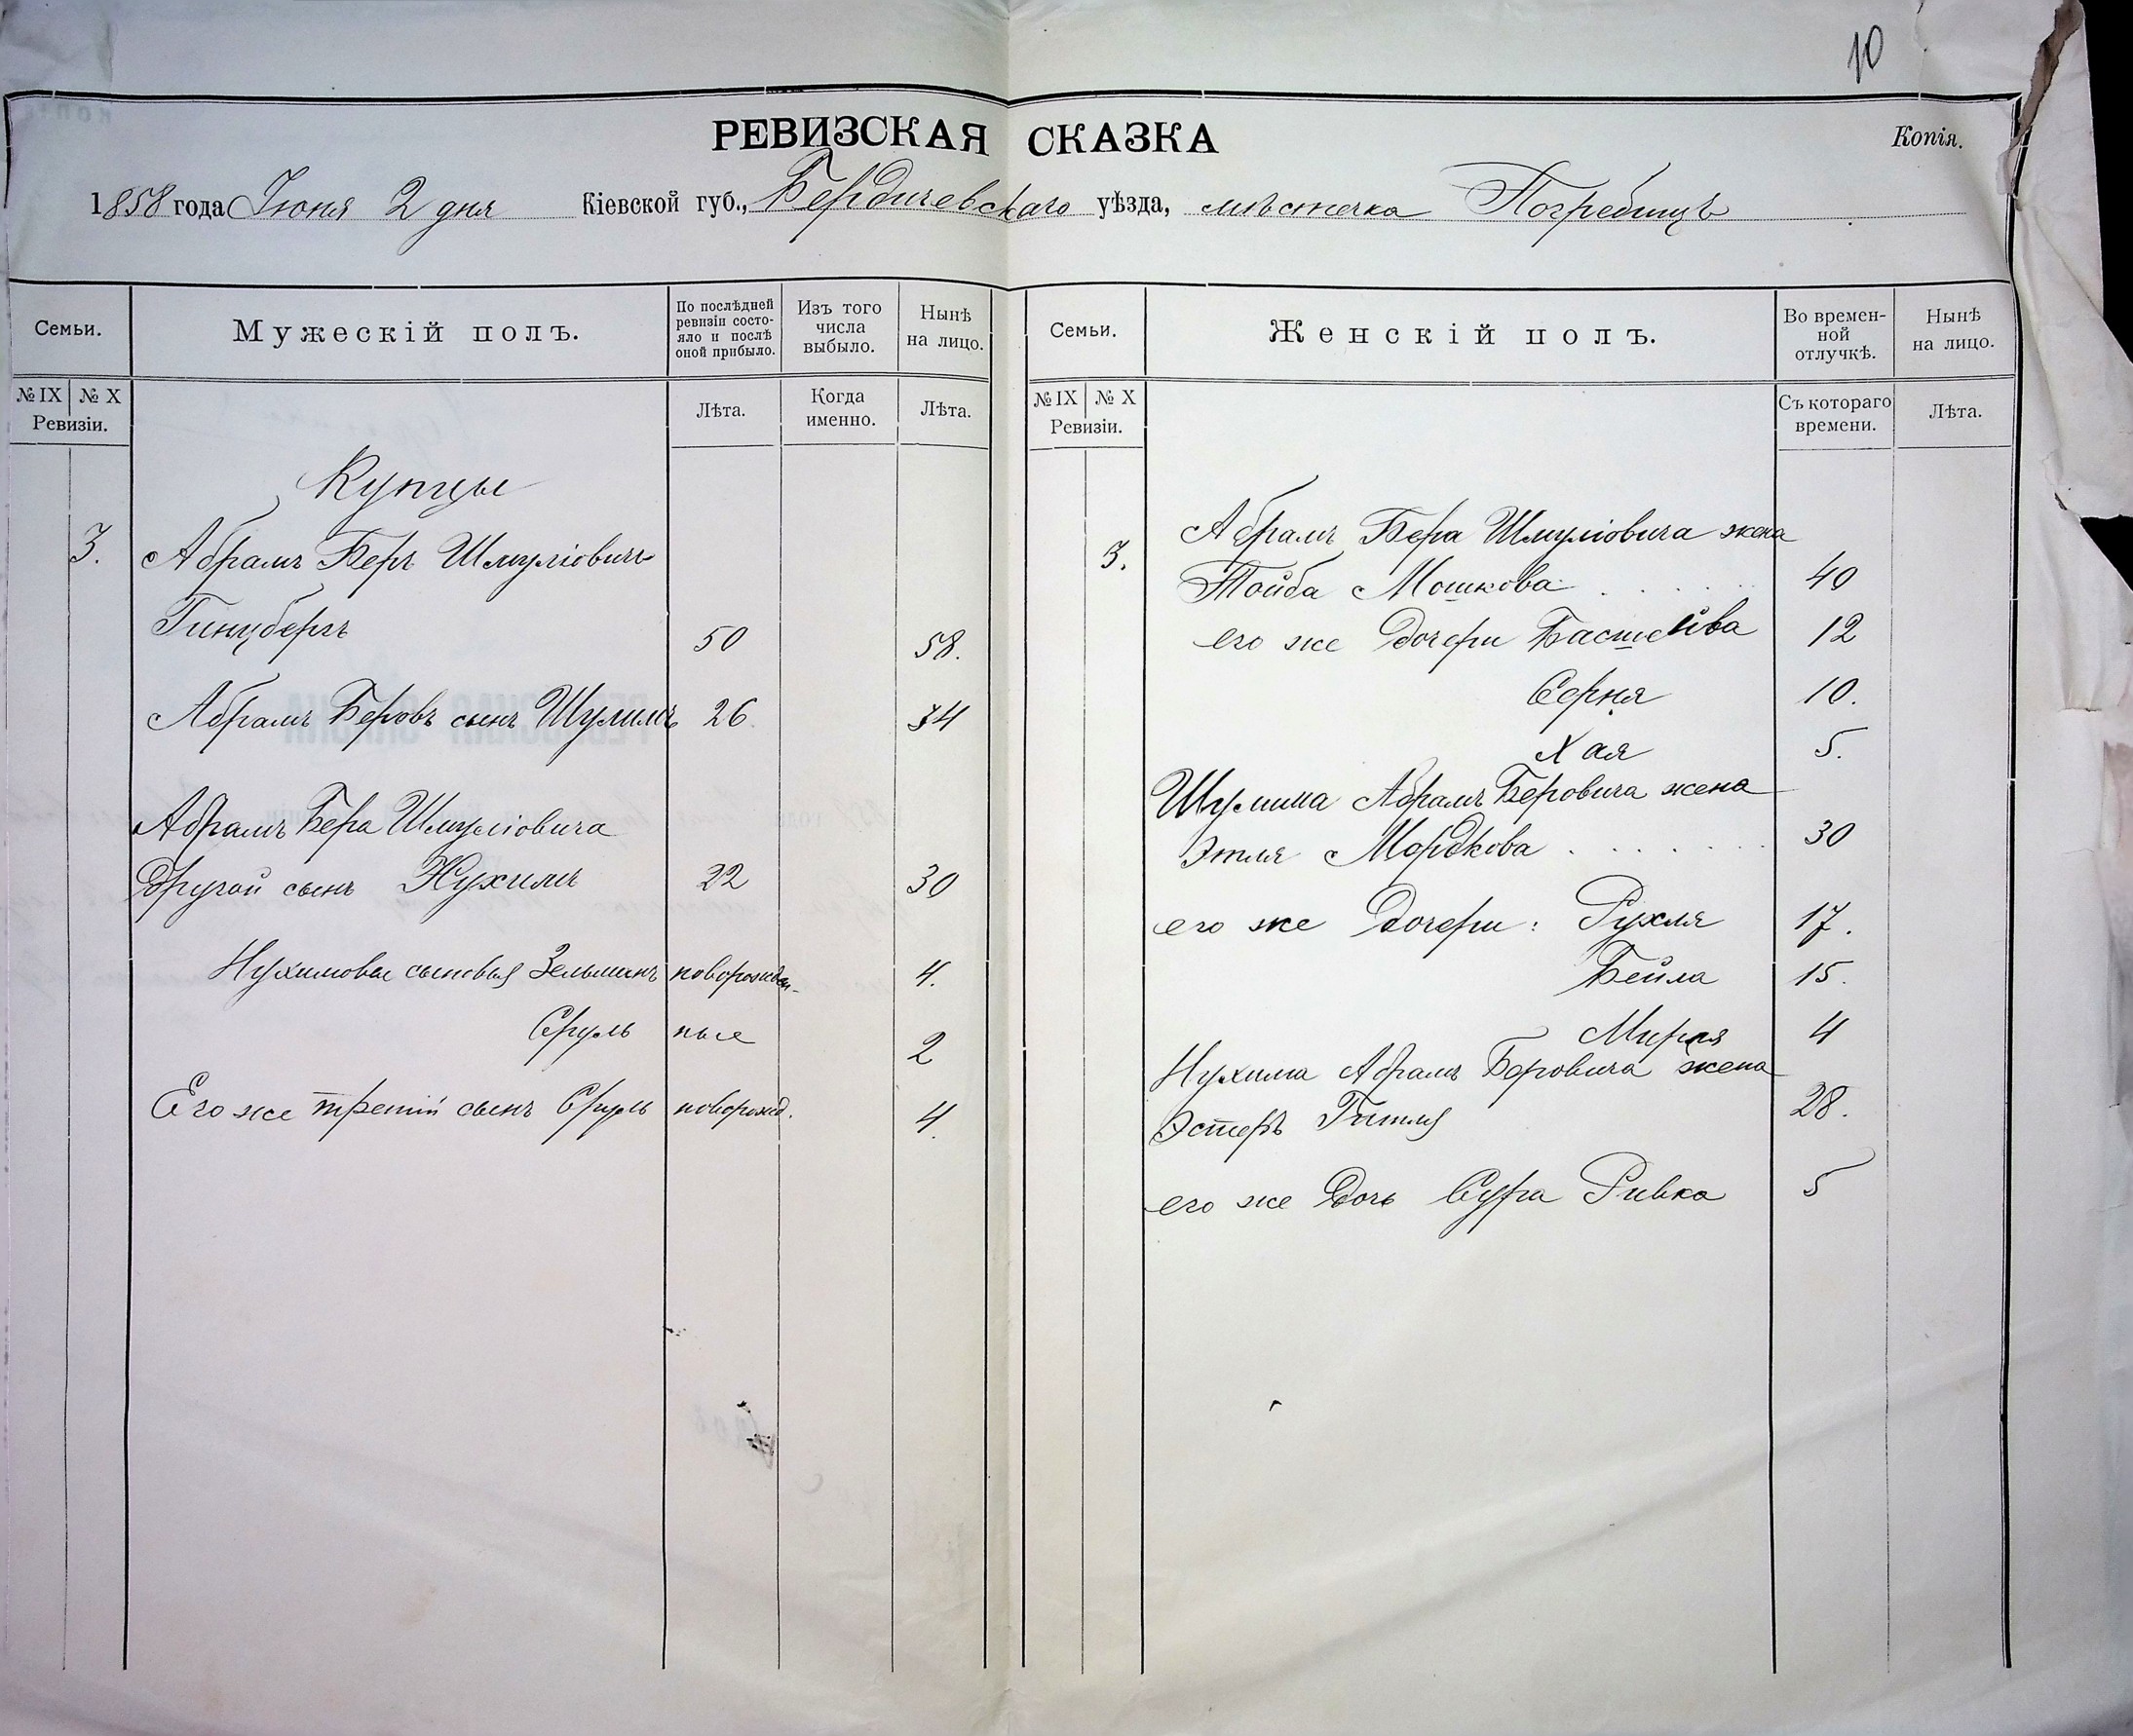 10
РЕВИЗСКАЯ СКАЗКА
Копія.
1858 года Іюня 2 дня Кіевской губ., Бердичевскаго уѣзда, мѣстечка Погребищъ
Семьи.
Мужескій полъ.
По послѣдней ревизіи состояло и послѣ оной прибыло.
Изъ того числа выбыло.
Нынѣ на лицо.
№ IX № X
Ревизіи.
Лѣта.
Когда именно.
Лѣта.
Купцы
3. Абрамъ Беръ Шмуліовичъ
Гинцбергъ 50 58.
Абрамъ Беровъ сынъ Шулимъ 26 34
Абрамъ Бера Шмуліовича
другой сынъ Нухимъ 22 30
Нухимовы сыновья Зельманъ новорожден- 4.
Сруль ные 2
Его же третій сынъ Сруль новорожд. 4.
Семьи.
Женскій полъ.
Во временной отлучкѣ.
Нынѣ на лицо.
№ IX № X
Ревизіи.
Съ котораго времени.
Лѣта.
3. Абрамъ Бера Шмуліовича жена
Тойба Мошкова 40
его же дочери Басшейва 12
Серня 10.
Хая 5.
Шулима Абрамъ Беровича жена
Этля Мордкова 30
его же дочери: Рухля 17.
Бейла 15.
Мирля 4
Нухима Абрамъ Беровича жена
Эстеръ Гитля 28.
его же дочь Сура Ривка 5